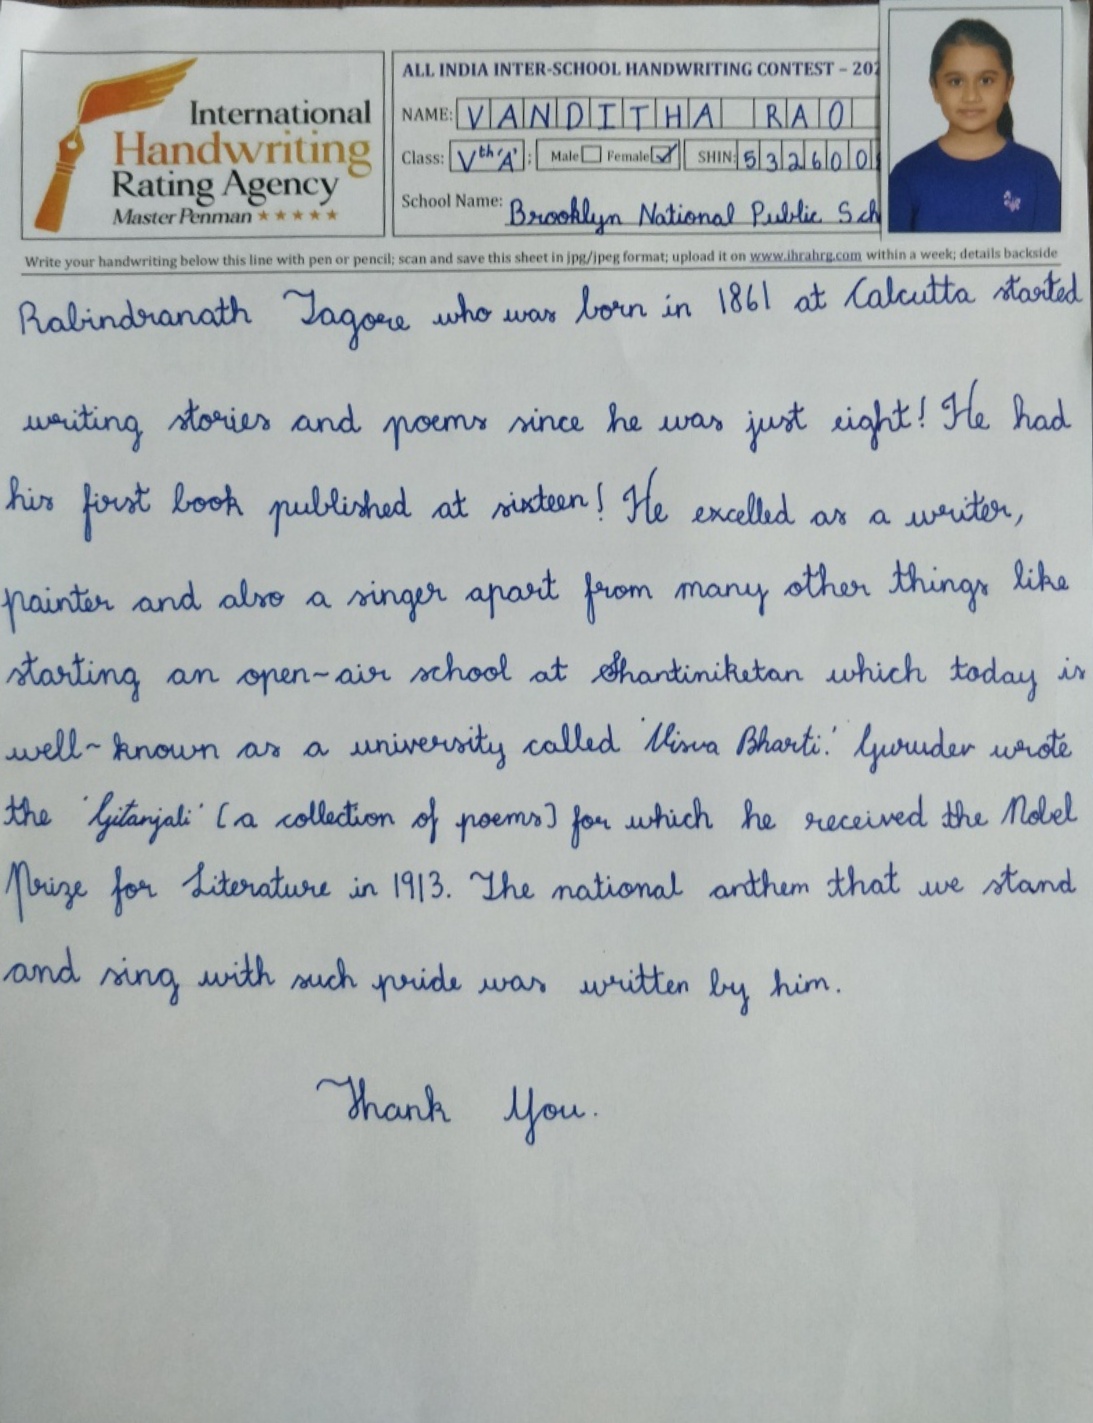 International
Handwriting
Rating Agency
Master Penman ★★★★★
ALL INDIA INTER-SCHOOL HANDWRITING CONTEST – 202
NAME: VANDITHA RAO
Class: Vth 'A' ; Male Female ✓ SHIN: 532600
School Name: Brooklyn National Public Sch
Write your handwriting below this line with pen or pencil; scan and save this sheet in jpg/jpeg format; upload it on www.ihrahrg.com within a week; details backside
Rabindranath Tagore who was born in 1861 at Calcutta started
writing stories and poems since he was just eight! He had
his first book published at sixteen! He excelled as a writer,
painter and also a singer apart from many other things like
starting an open-air school at Shantiniketan which today is
well-known as a university called 'Visva Bharti.' Gurudev wrote
the 'Gitanjali' (a collection of poems) for which he received the Nobel
Prize for Literature in 1913. The national anthem that we stand
and sing with such pride was written by him.
Thank You.